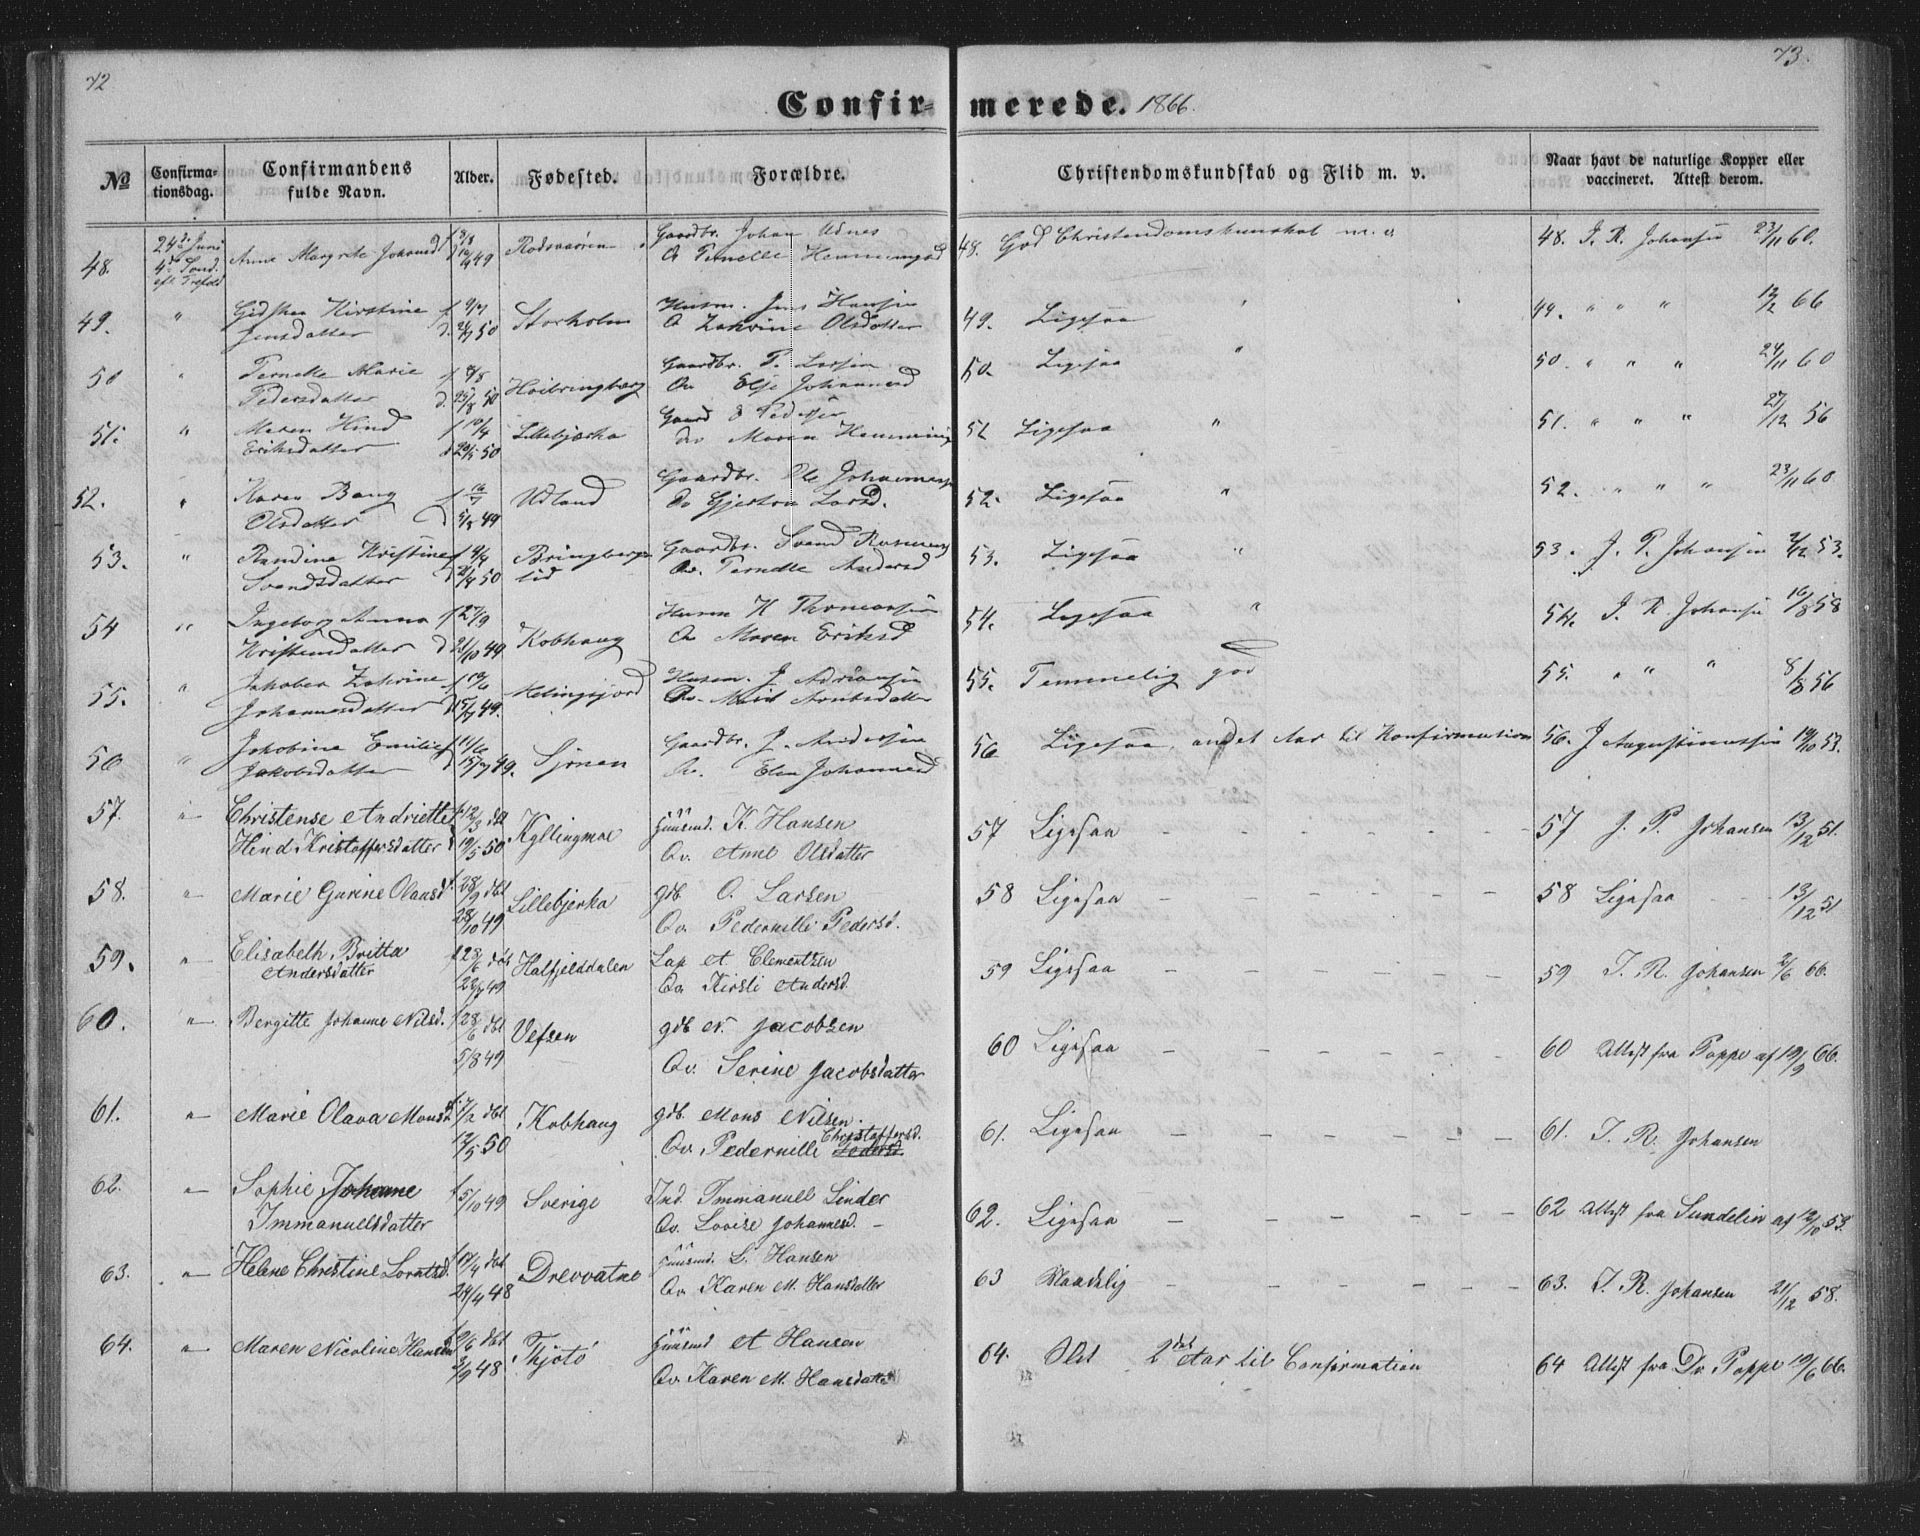 72
73.
Confirmerede. 1866.
No
Confirmationsdag.
Confirmandens fulde Navn.
Alder.
Fødested.
Forældre.
Christendomskundskab og Flid m. v.
Naar havt de naturlige Kopper eller vaccineret. Attest derom.
48. 24de Juni 4de Sønd. eft. Trefold. Anne Margrete Johansd Gaardbr. Johan Udnes
Qv Pernelle Hemmingsd
48. God Christendomskunskab m. v
48. J. R. Johansen 23/11 60.
49. " Gidsken Kirstine f
Jensdatter d. 50 Storholm Husm. Jens Hansen
Q Zakrine Olsdatter
49. Ligesaa
49. " " " 12/2 66
50 " Pernelle Marie f
Pedersdatter d. 50 Høibringberg Gaardbr. P. Larsen
Qv Else Johannesd
50. Ligesaa "
50. " " " 24/11 60
51. " Maren Hind f 10/4
Eriksdatter 50 Lillebjerka Gaard E Pedersen
Qv Maren Hemmings
51 Ligesaa "
51. " " " 27/12 56
52. " Karen Bang f
Olsdatter d 49 Udland Gaardbr. Ole Johannes
Qv Gjertru Larsd.
52. Ligesaa "
52. " " " 23/11 60
53. " Randine Kristine f
Svendsdatter d 50 Bringbergslid Gaardbr. Svend Rasmus
Qv. Pernelle Andersd
53. Ligesaa "
53. J. P. Johansen 2/12 53.
54 " Ingeborg Anna f 27/9
Kristensdatter d 21/10 49 Kobhaug Husm K Thomassen
Qv Maren Eriksd
54. Ligesaa "
54. J. R. Johansen 16/8 58
55. " Jakobea Zakrine f
Johannesdatter d 15/7 49. Husm. J. Adriansen
55. Temmelig god
55. " " 8/8 56
56 " Jakobine Emilie f 11/6
Jakobsdatter d 15/7 49. Sjønen Gaardbr. J. Andersen
Qv. Elen Johannesd
56 Ligesaa, andet Aar til Konfirmation
56. J Augustinussen 19/10 53.
57. " Christense Andriette f. 12/3 dbt
Hind Kristoffersdatter 19/5 50 Kyllingmoe Huusmd. K. Hansen
Qv. Anne Olsdatter
57 Ligesaa
57 J. P. Johansen 13/12 51.
58. " Marie Gurine Olausd f. 28/9 dbt
28/10 49 Lillebjerka gdb O. Larsen
Qv. Pedernille Pedersd.
58 Ligesaa
58 Ligesaa 13/12 51
59. " Elisabeth Britta f 23/6 dbt
Andersdatter 49 Halfjelddalen Lap A. Clementsen
Qv. Kirsti Andersd.
59 Ligesaa
59 J. R. Johansen 2/6 66.
60. " Bergitte Johanne Nilsd. f 28/6 dbt
5/8 49 Vefsen gdb N. Jacobsen
Qv. Serine Jacobsdatter
60 Ligesaa
60 Attest fra Poppe af 19/9 66.
61. " Marie Olava Monsd f. 7/2 dbt
50 Kobhaug gdb. Mons Nilsen.
Qv. Pedernille Christoffersd. Pedersd.
61. Ligesaa
61. J. R. Johansen
62. " Sophie Johanne f
Immanuelsdatter 5/10 49 Sverige Ind. Immanuel Linder
Qv. Lovise Johannesd. -
62. Ligesaa
62 Attest fra Sundelin af 12/10 53.
63. " Helene Christine Lorntsd. f 17/4 dbt
24/4 48 Drevvatne Huusmd. L. Hansen
Qv. Karen M. Hansdatter
63 Maadelig
63. J. R. Johansen 21/12 58.
64. " Maren Nicoline Hansen f 9/6 dbt
2/9 48 Thjøtø Huusmd A Hansen
Qv. Karen M. Hansdatter
64. Slet 2det Aar til Confirmation
64 Attest fra Dr. Poppe 19/6 66.